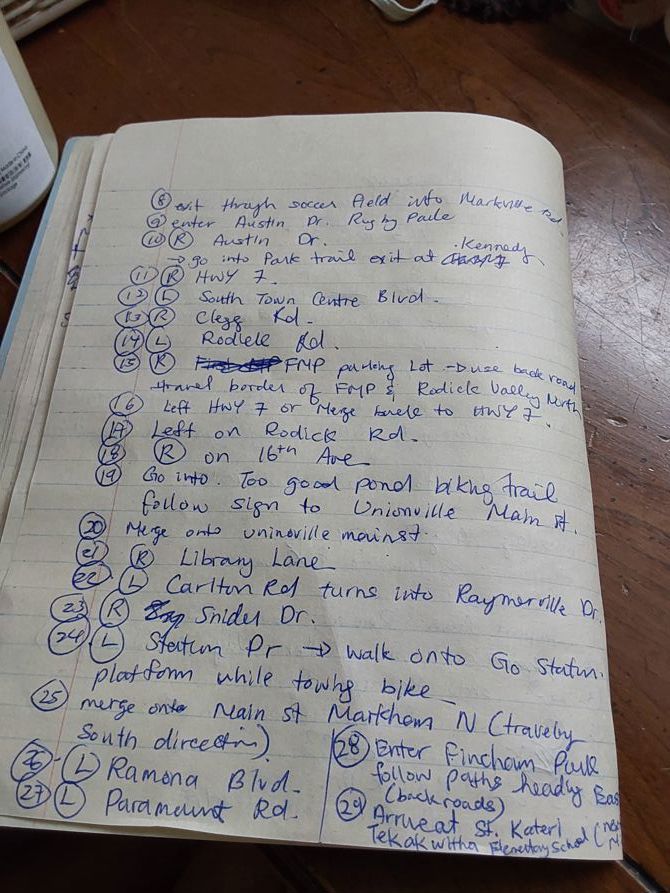 ⑧ exit through soccer field into Markville Rd.
⑨ enter Austin Dr. Rugby
⑩ Ⓡ Austin Dr.
→ go into Park trail exit at Kennedy.
⑪ Ⓡ HWY 7.
⑫ Ⓛ South Town Centre Blvd.
⑬ Ⓡ Clegg Rd.
⑭ Ⓛ Rodick Rd.
⑮ Ⓡ FMP parking Lot → use back road
travel border of FMP & Rodick Valley North
⑯ Left HWY 7 or Merge to HWY 7.
⑰ Left on Rodick Rd.
⑱ Ⓡ on 16th Ave
⑲ Go into Too good pond biking trail
follow sign to Unionville Main st.
⑳ Merge onto uninoville mainst.
㉑ Ⓡ Library Lane
㉒ Ⓛ Carlton Rd turns into Raymerville Dr.
㉓ Ⓡ Snider Dr.
㉔ Ⓛ Station Dr → walk onto Go Station.
platform while towing bike
㉕ merge onto Main st Markham N (travelby
South direction)
㉖ Ⓛ Ramona Blvd.
㉗ Ⓛ Paramount Rd.
㉘ Enter Fincham Park
follow paths heading East
(back roads)
㉙ Arrive at St. Kateri
Tekakwitha Elementary School